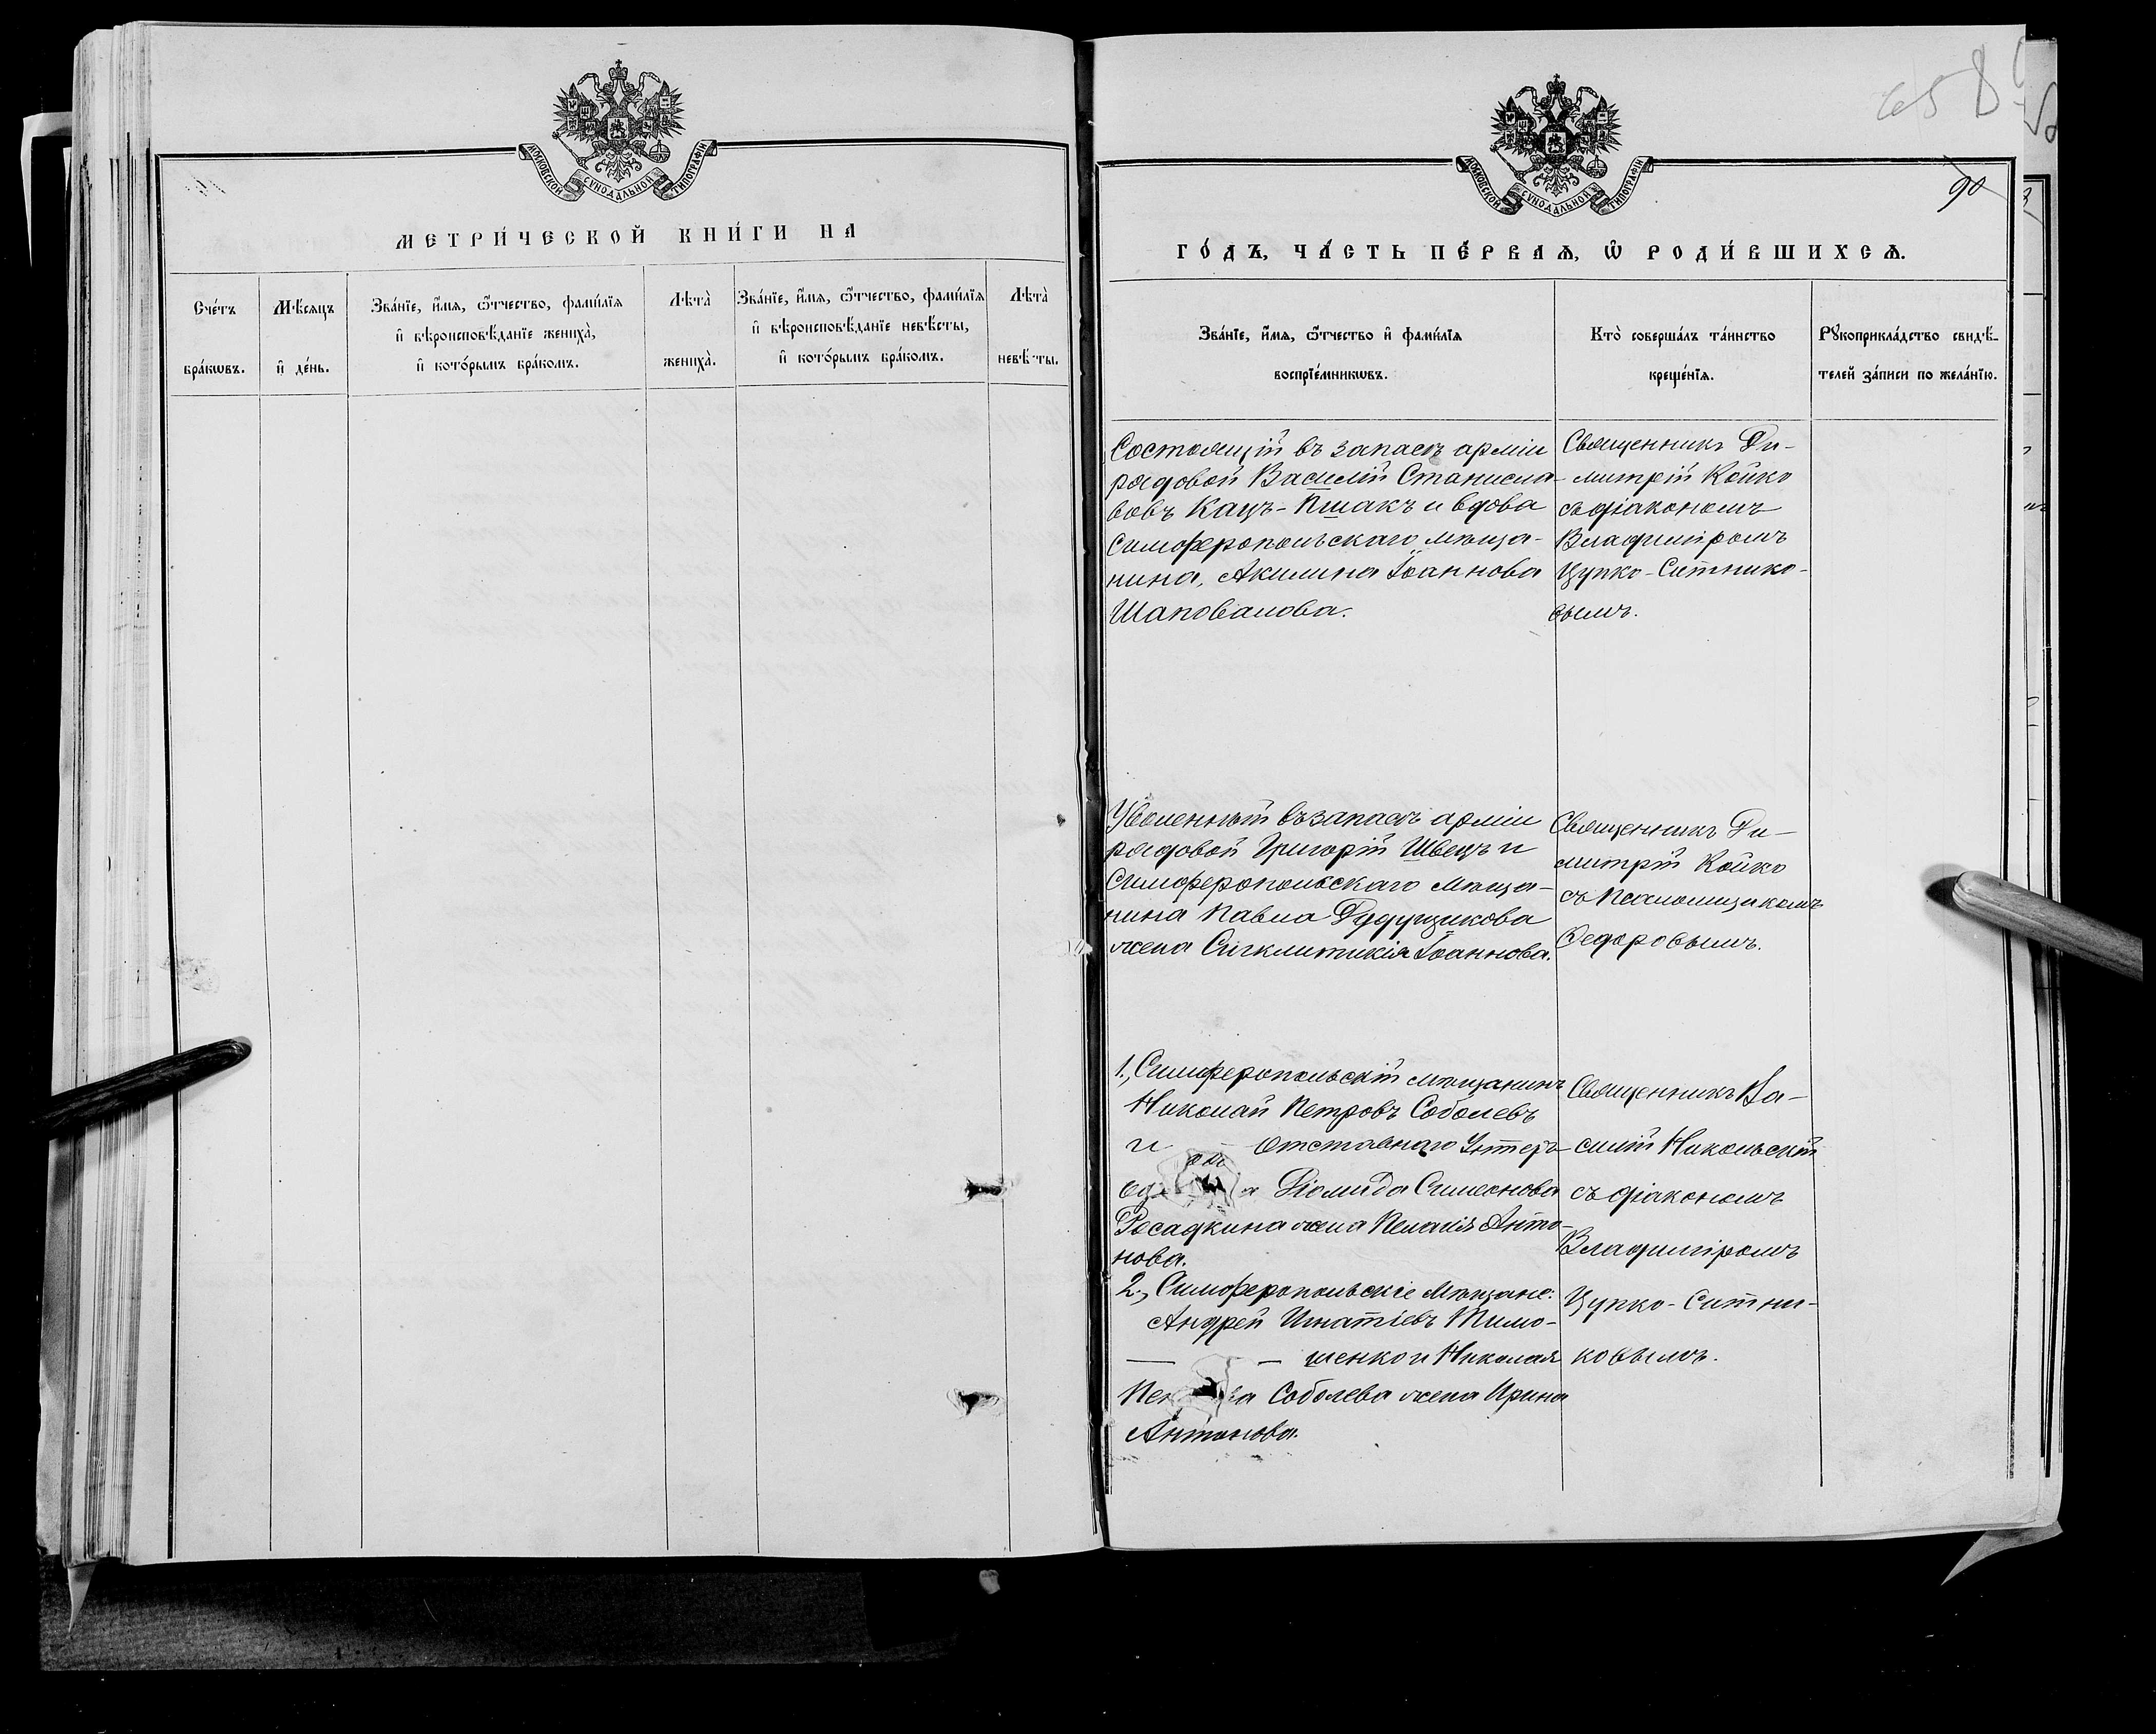 МОСКОВСКОЙ СѴНОДАЛЬНОЙ ТИПОГРАФІИ
МЕТРИ́ЧЕСКОЙ КНИ́ГИ НА
Сче́тъ бра́кѡвъ.
Мѣ́сяцъ и҆ де́нь.
Зва́нїе, и҆́мя, ѻ҆́тчество, фами́лїя
и҆ вѣроисповѣ́данїе жениха̀,
и҆ кото́рымъ бра́комъ.
Лѣта̀ жениха̀.
Зва́нїе, и҆́мя, ѻ҆́тчество, фами́лїя
и҆ вѣроисповѣ́данїе невѣ́сты,
и҆ кото́рымъ бра́комъ.
Лѣта̀ невѣ́сты.
658
90
МОСКОВСКОЙ СѴНОДАЛЬНОЙ ТИПОГРАФІИ
ГО́ДЪ, ЧА́СТЬ ПЕ́РВАѦ, Ѡ҆ РОДИ́ВШИХСѦ.
Зва́нїе, и҆́мя, ѻ҆́тчество и҆ фами́лїя
воспрїе́мникѡвъ.
Кто̀ соверша́лъ та́инство
креще́нїя.
Рꙋкоприкла́дство свидѣ́-
телей за́писи по жела́нїю.
Состоящій въ запасѣ арміи
рядовой Василій Станисла-
вовъ Кацъ-Пшакъ и вдова
симферопольскаго мѣща-
нина, Акилина Іоаннова
Шаповалова.
Священникъ Ди-
митрій Койко
съ діакономъ
Владиміромъ
Цупко-Ситнико-
вымъ.
Уволенный въ запасъ арміи
рядовой Григорій Швецъ и
симферопольскаго мѣща-
нина Павла Дудущикова
жена Сигклитикія Іоаннова.
Священникъ Ди-
митрій Койко
съ псаломщикомъ
Федоровымъ.
1., Симферопольскій мѣщанинъ
Николай Петровъ Соболевъ
и отставного Унтеръ
Діомида Симеонова
Росадкина жена Пелагія Анто-
нова.
2., Симферопольскіе мѣщане:
Андрей Игнатіевъ Тимо-
шенко и Николая
Соболева жена Ирина
Антонова.
Священникъ Ва-
силій Никольскій
съ діакономъ
Владиміромъ
Цупко-Ситни-
ковымъ.